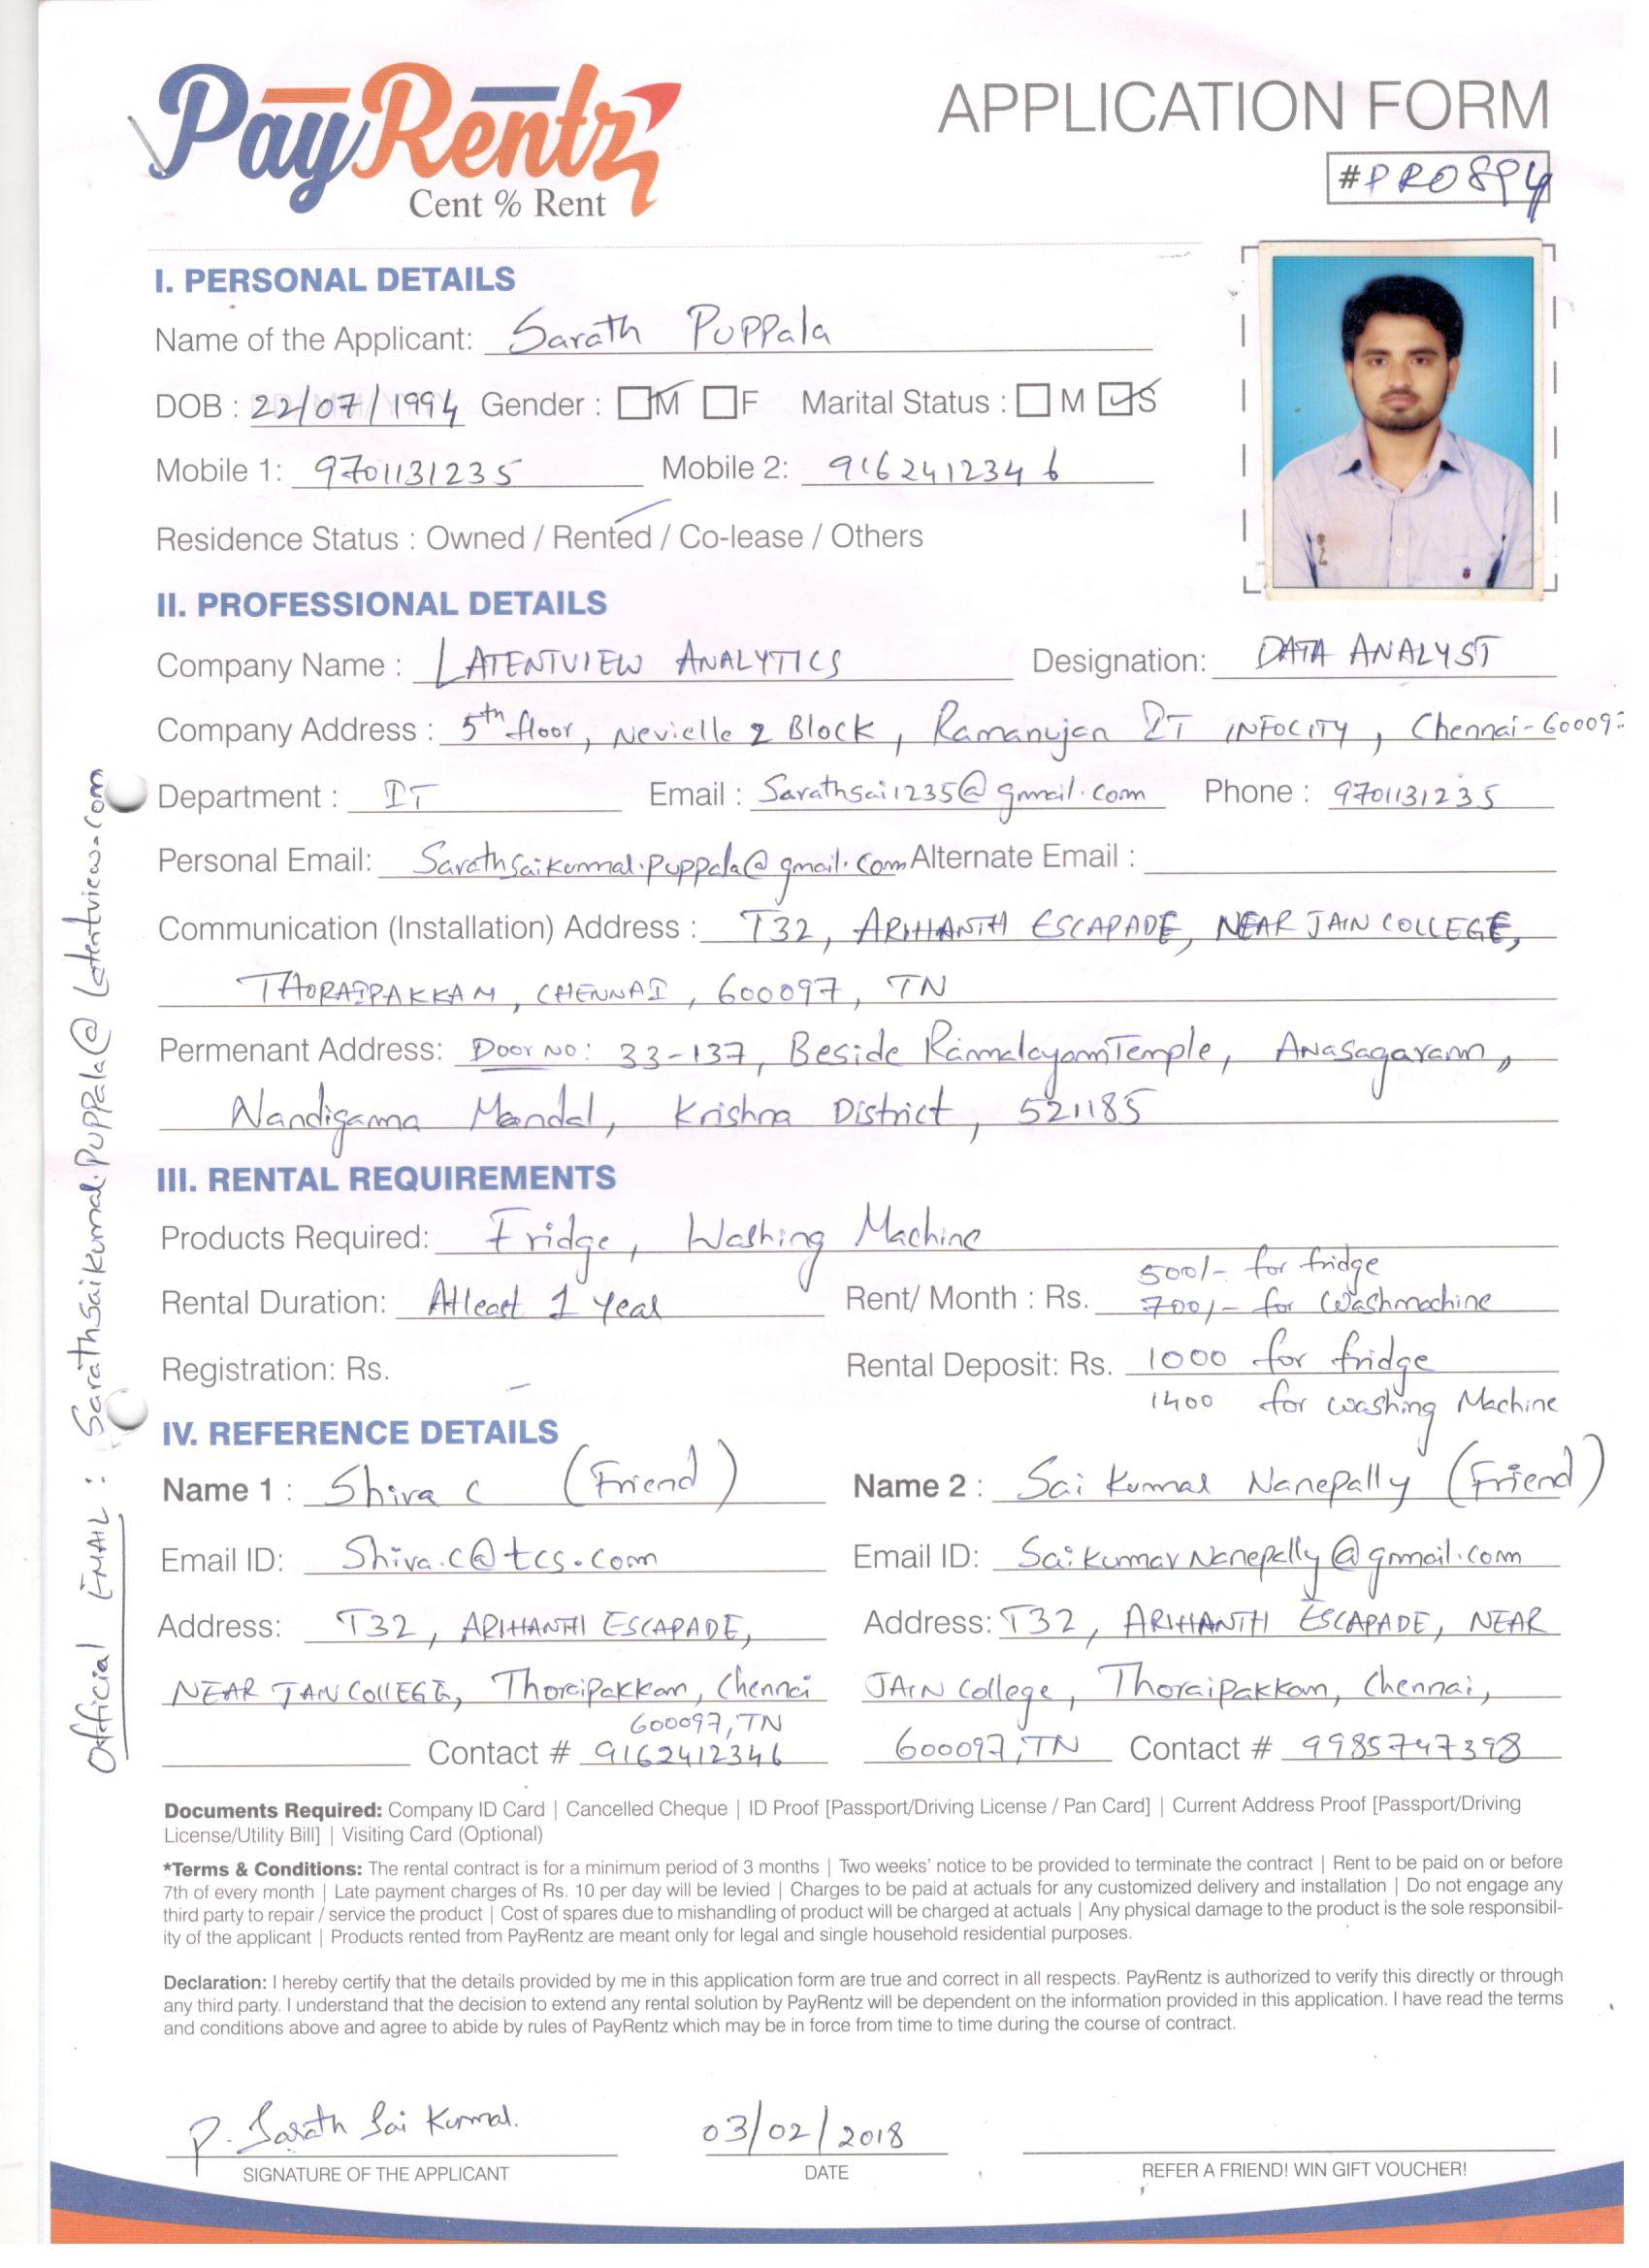 PayRentz
Cent % Rent
APPLICATION FORM
#PRO894
I. PERSONAL DETAILS
Name of the Applicant: Sarath Puppala
DOB : 22/07/1994 Gender : M F Marital Status : M S
Mobile 1: 9701131235 Mobile 2: 9162412346
Residence Status : Owned / Rented / Co-lease / Others
II. PROFESSIONAL DETAILS
Company Name : LATENTVIEW ANALYTICS Designation: DATA ANALYST
Company Address : 5th floor, Nevielle 2 Block, Ramanujan IT INFOCITY, Chennai-60009
Department : IT Email : Sarathsai1235@gmail.com Phone : 9701131235
Personal Email: Sarathsaikumal.puppala@gmail.com Alternate Email :
Communication (Installation) Address : T32, ARIHANTH ESCAPADE, NEAR JAIN COLLEGE,
THORAIPAKKAM, CHENNAI, 600097, TN
Permenant Address: Door No: 33-137, Beside Ramalayam Temple, Anasagaram,
Nandigama Mandal, Krishna District, 521185
III. RENTAL REQUIREMENTS
Products Required: Fridge, Washing Machine
500/- for fridge
Rental Duration: Atleast 1 year Rent/ Month : Rs. 700/- for Washmachine
Registration: Rs. - Rental Deposit: Rs. 1000 for fridge
1400 for washing Machine
IV. REFERENCE DETAILS
Name 1 : Shiva C (Friend) Name 2 : Sai Kumal Nanepally (Friend)
Email ID: Shiva.c@tcs.com Email ID: SaikumarNanepally@gmail.com
Address: T32, ARIHANTH ESCAPADE, Address: T32, ARIHANTH ESCAPADE, NEAR
NEAR JAIN COllEGE, Thoraipakkam, Chennai JAIN College, Thoraipakkam, Chennai,
600097, TN
Contact # 9162412346 600097, TN Contact # 9985747398
Official EMAIL : Sarathsaikumal.puppala@latentview.com
Documents Required: Company ID Card | Cancelled Cheque | ID Proof [Passport/Driving License / Pan Card] | Current Address Proof [Passport/Driving
License/Utility Bill] | Visiting Card (Optional)
*Terms & Conditions: The rental contract is for a minimum period of 3 months | Two weeks' notice to be provided to terminate the contract | Rent to be paid on or before
7th of every month | Late payment charges of Rs. 10 per day will be levied | Charges to be paid at actuals for any customized delivery and installation | Do not engage any
third party to repair / service the product | Cost of spares due to mishandling of product will be charged at actuals | Any physical damage to the product is the sole responsibil-
ity of the applicant | Products rented from PayRentz are meant only for legal and single household residential purposes.
Declaration: I hereby certify that the details provided by me in this application form are true and correct in all respects. PayRentz is authorized to verify this directly or through
any third party. I understand that the decision to extend any rental solution by PayRentz will be dependent on the information provided in this application. I have read the terms
and conditions above and agree to abide by rules of PayRentz which may be in force from time to time during the course of contract.
P. Sarath Sai Kumal. 03/02/2018
SIGNATURE OF THE APPLICANT DATE REFER A FRIEND! WIN GIFT VOUCHER!